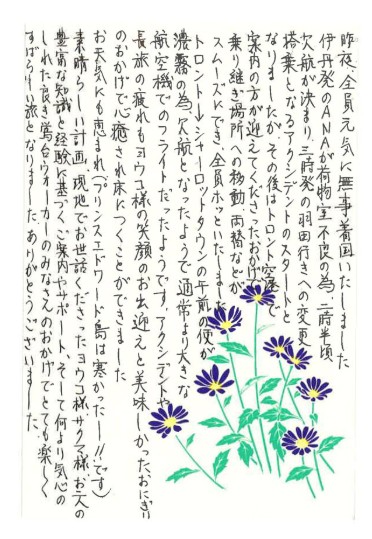 昨夜、全員元気に無事着国いたしました
伊丹発のANAが荷物室不良の為、二時半頃、
欠航が決まり、三時発の羽田行きへの変更
搭乗となるアクシデントのスタートと
なりましたが、その後はトロント空港で
案内の方が迎えてくださったおかげで
乗り継ぎ場所への移動、両替などが
スムーズにでき、全員ホッといたしました
トロント→シャーロットタウンの午前の便が
濃霧の為、欠航となったようで、通常より大きな
航空機でのフライトだったようです。アクシデントや
長旅の疲れもヨウコ様の笑顔のお出迎えと美味しかったおにぎり
のおかげで心癒され床につくことができました
お天気にも恵まれ(プリンスエドワード島は寒かったー!!です)
素晴らしい計画、現地でお世話くださったヨウコ様、サクマ様、お二人の
豊富な知識と経験に基づくご案内やサポート、そして何より気心の
しれた良き鶯台ウォーカーのみなさんのおかげでとても楽しく
すばらしい旅となりました。ありがとうございました。